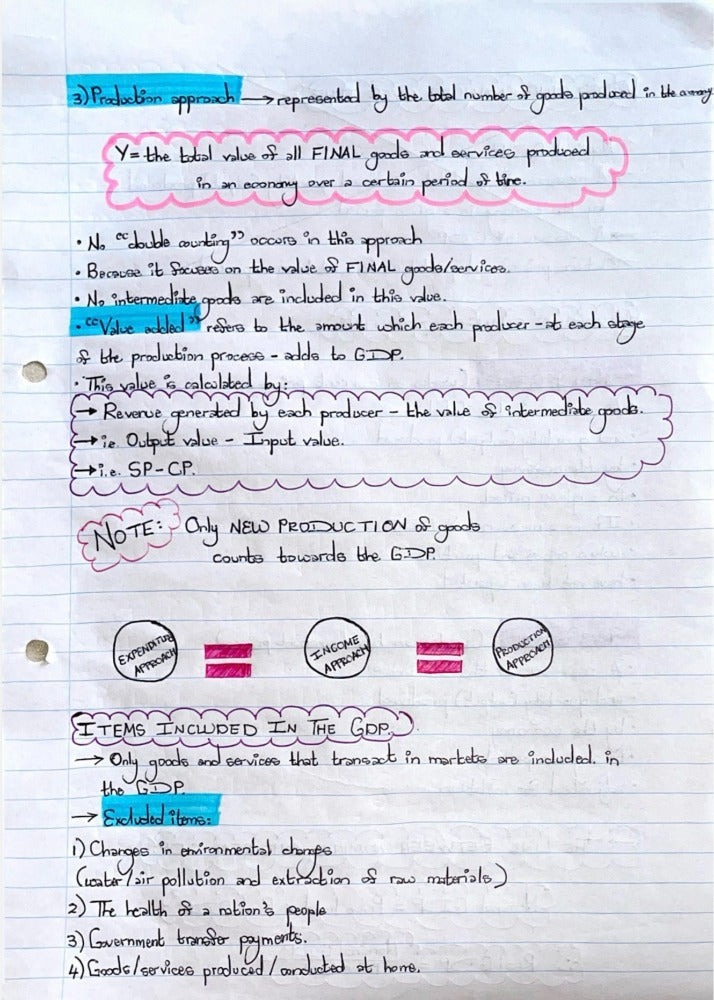 3) Production approach → represented by the total number of goods produced in the economy
Y = the total value of all FINAL goods and services produced
in an economy over a certain period of time.
• No "double counting" occurs in this approach
• Because it focuses on the value of FINAL goods/services.
• No intermediate goods are included in this value.
• "Value added" refers to the amount which each producer - at each stage
of the production process - adds to GDP.
• This value is calculated by:
→ Revenue generated by each producer - the value of intermediate goods.
→ ie. Output value - Input value.
→ i.e. SP - CP.
NOTE: Only NEW PRODUCTION of goods
counts towards the GDP.
EXPENDITURE APPROACH = INCOME APPROACH = PRODUCTION APPROACH
ITEMS INCLUDED IN THE GDP.
→ Only goods and services that transact in markets are included. in
the GDP.
→ Excluded items:
1) Changes in environmental changes
(water/air pollution and extraction of raw materials)
2) The health of a nation's people
3) Government transfer payments.
4) Goods/services produced/conducted at home.